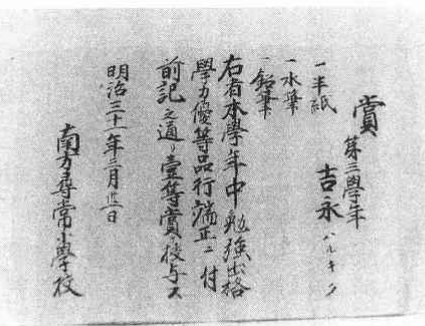 賞
第三學年
吉永ハルキク
一半紙
一水筆
一鉛筆
右者本學年中勉強出格
學力優等品行端正ニ付
前記之通リ壹等賞授与ス
明治三十一年三月
南方尋常小學校